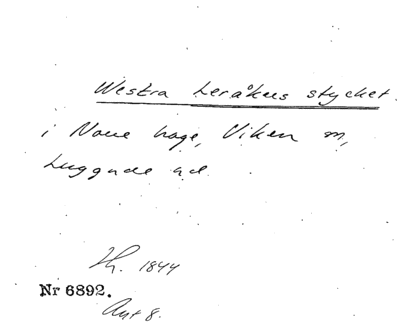 Westra Leråkers stycket.
i Norre hage, Viken m,
Luggude hd.
Th. 1844
Nr 6892.
Avt 8.